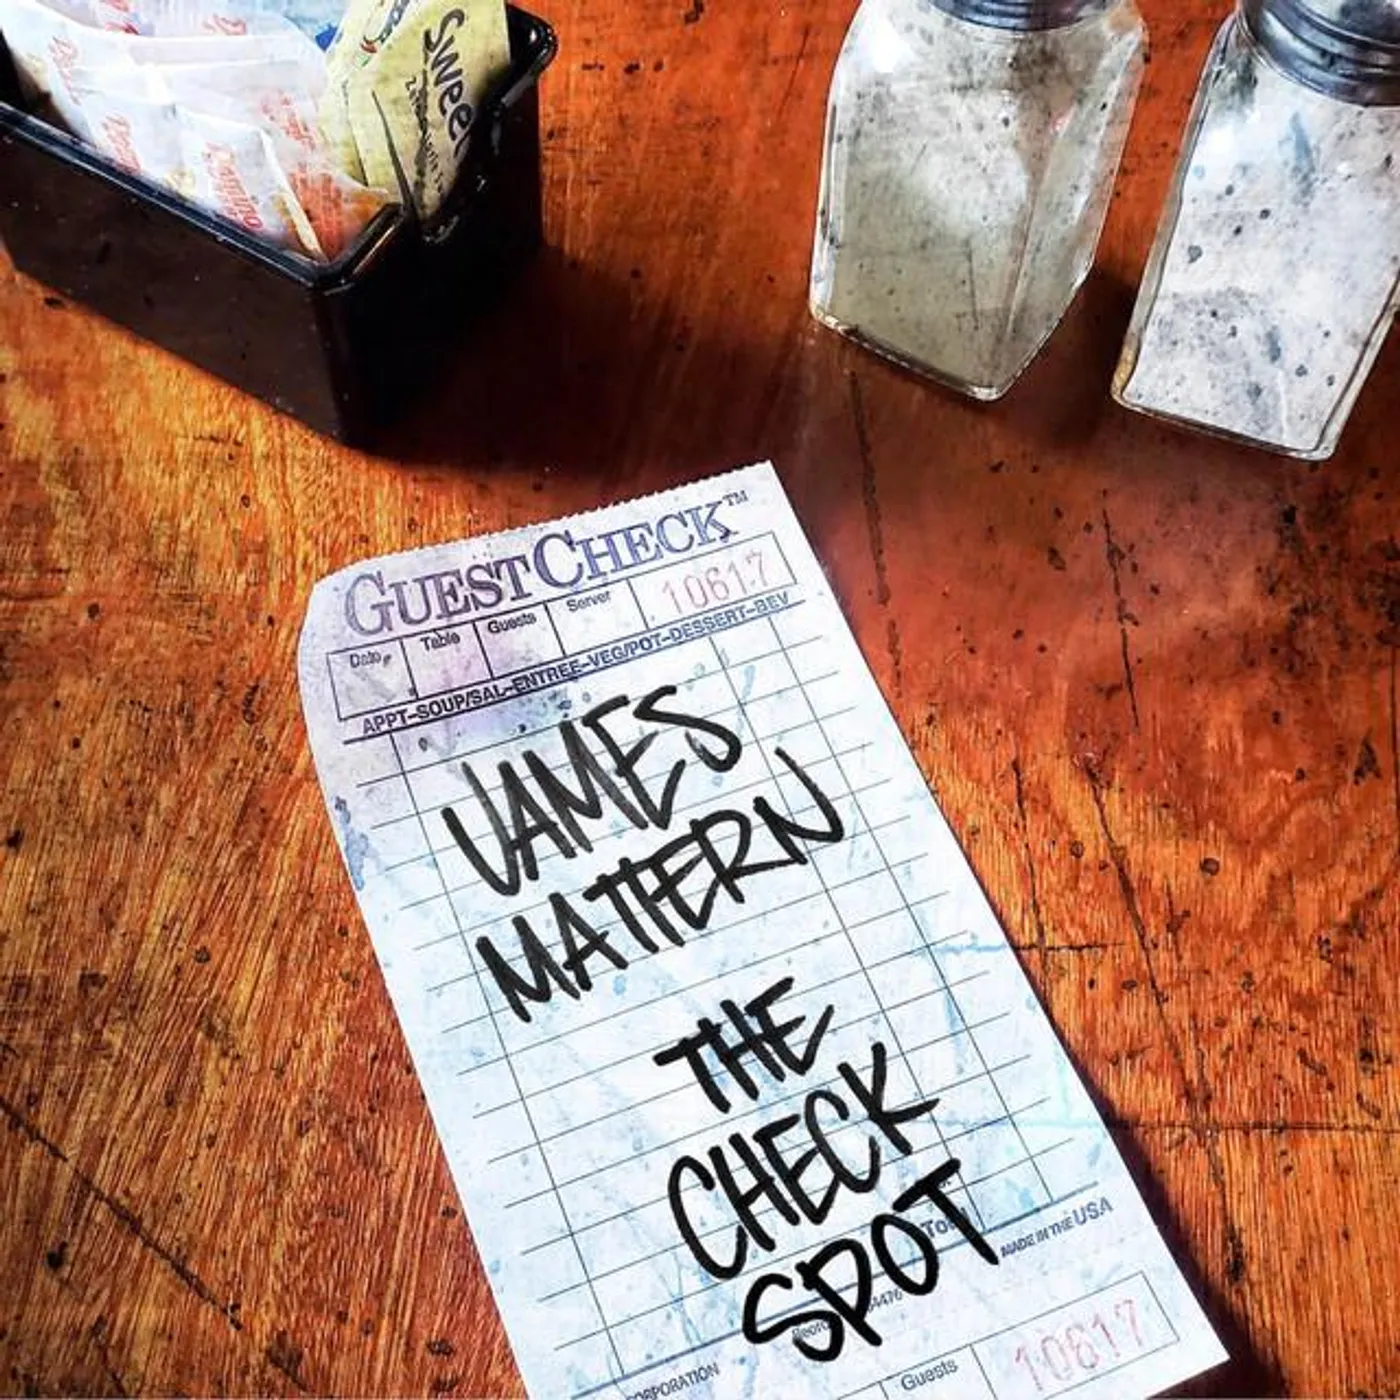 Sweet
GUEST CHECK™
Date
Table
Guests
Server
10617
APPT-SOUP/SAL-ENTREE-VEG/POT-DESSERT-BEV
JAMES
MATTERN
THE
CHECK
SPOT
MADE IN THE USA
Guests
10617